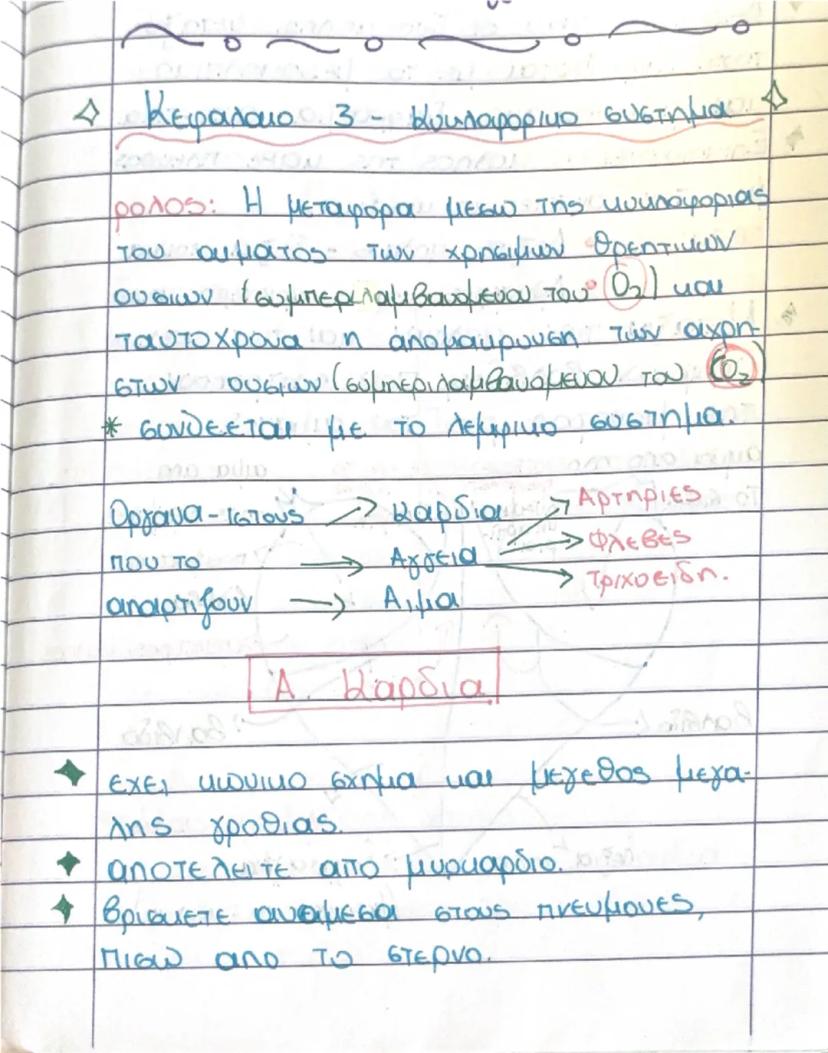 Κεφαλαιο 3 - Κυκλοφορικο συστημα
ρολος: Η μεταφορα μεσω της κυκλοφοριας
του αιματος των χρησιμων θρεπτικων
ουσιων (συμπεριλαμβανομενου του O₂) και
ταυτοχρονα η απομακρυνση των αχρη-
στων ουσιων (συμπεριλαμβανομενου του CO₂)
* συνδεεται με το λεμφικο συστημα.
Οργανα - ιστους → καρδια → Αρτηριες
που το → Αγγεια → Φλεβες
απαρτιζουν → Αιμα → Τριχοειδη.
Α. Καρδια
εχει κωνικο σχημα και μεγεθος μεγα-
λης γροθιας.
αποτελειτε απο μυοκαρδιο.
βρισκετε αναμεσα στους πνευμονες,
πισω απο το στερνο.